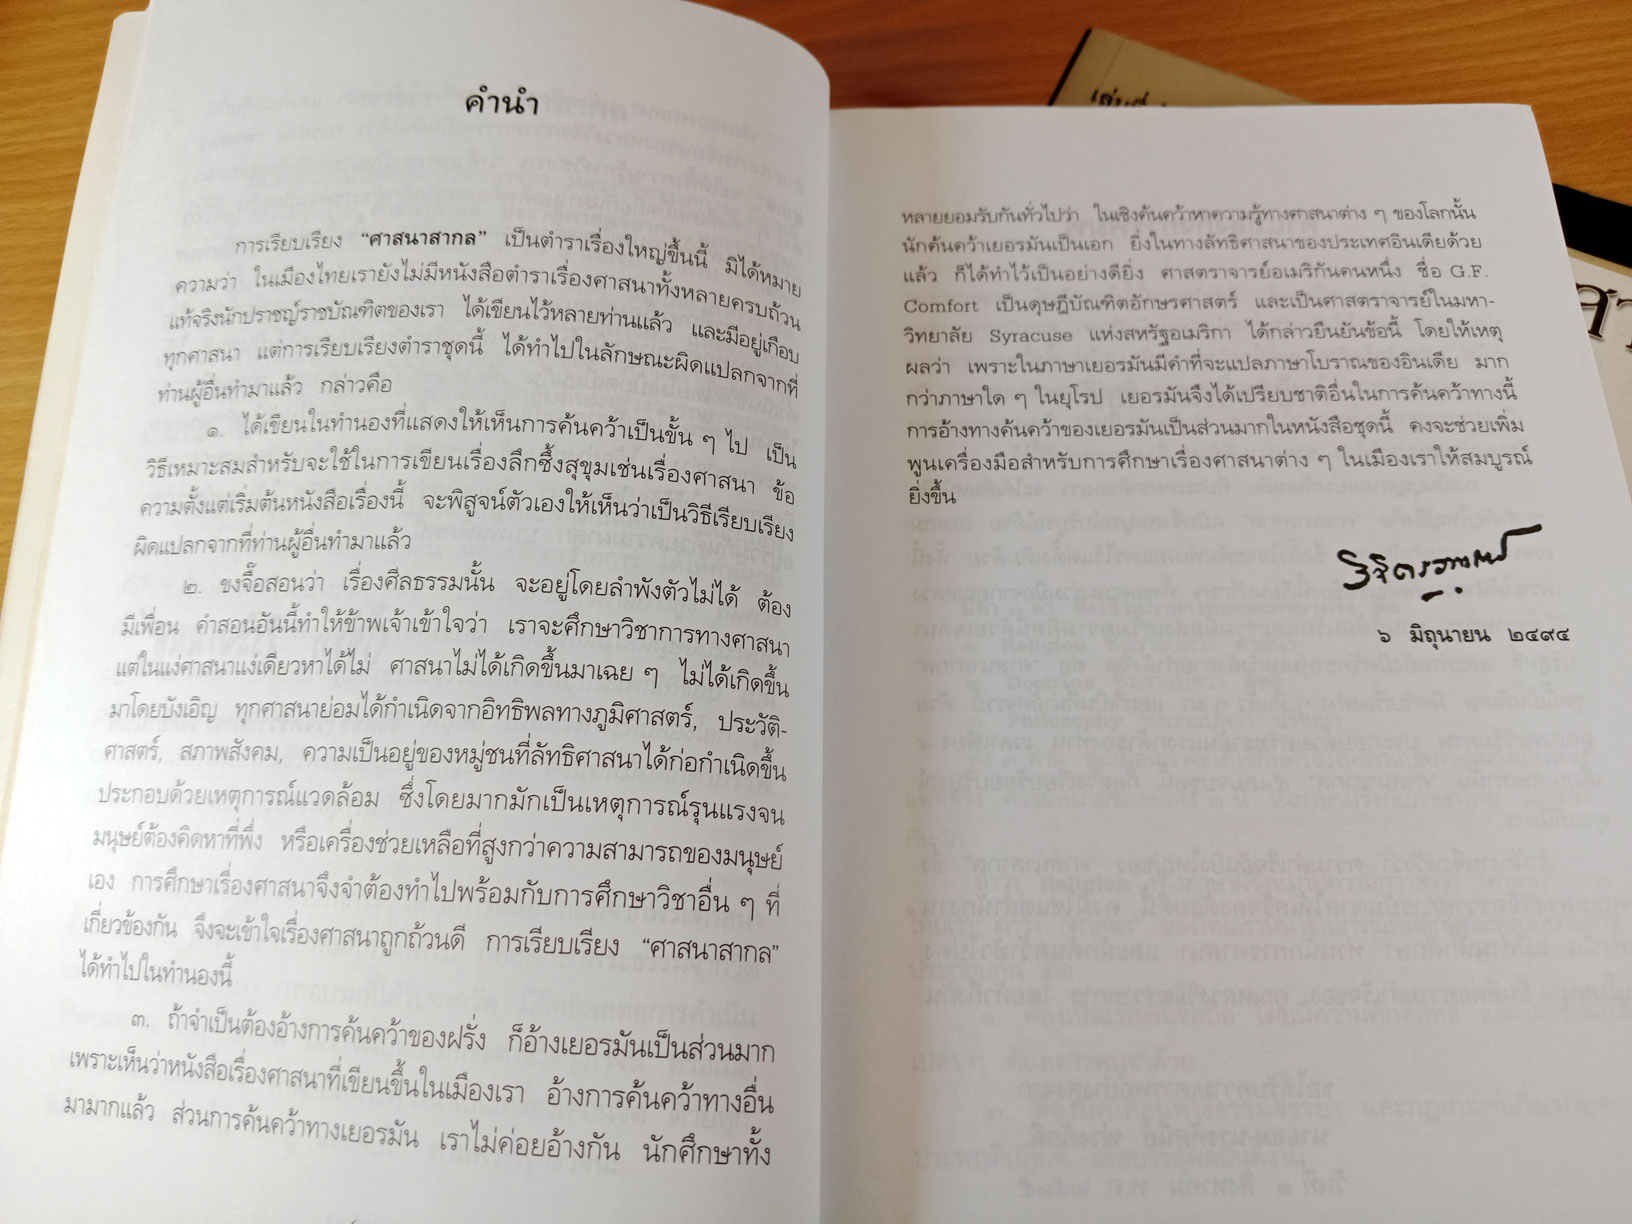 คำนำ
การเรียบเรียง “ศาสนาสากล” เป็นตำราเรื่องใหญ่ขึ้นนี้ มิได้หมาย
ความว่า ในเมืองไทยเรายังไม่มีหนังสือตำราเรื่องศาสนาทั้งหลายครบถ้วน
แท้จริงนักปราชญ์ราชบัณฑิตของเรา ได้เขียนไว้หลายท่านแล้ว และมีอยู่เกือบ
ทุกศาสนา แต่การเรียบเรียงตำราชุดนี้ ได้ทำไปในลักษณะผิดแปลกจากที่
ท่านผู้อื่นทำมาแล้ว กล่าวคือ
๑. ได้เขียนในทำนองที่แสดงให้เห็นการค้นคว้าเป็นขั้น ๆ ไป เป็น
วิธีเหมาะสมสำหรับจะใช้ในการเขียนเรื่องลึกซึ้งสุขุมเช่นเรื่องศาสนา ข้อ
ความตั้งแต่เริ่มต้นหนังสือเรื่องนี้ จะพิสูจน์ตัวเองให้เห็นว่าเป็นวิธีเรียบเรียง
ผิดแปลกจากที่ท่านผู้อื่นทำมาแล้ว
๒. ขงจื๊อสอนว่า เรื่องศีลธรรมนั้น จะอยู่โดยลำพังตัวไม่ได้ ต้อง
มีเพื่อน คำสอนอันนี้ทำให้ข้าพเจ้าเข้าใจว่า เราจะศึกษาวิชาการทางศาสนา
แต่ในแง่ศาสนาแง่เดียวหาได้ไม่ ศาสนาไม่ได้เกิดขึ้นมาเฉย ๆ ไม่ได้เกิดขึ้น
มาโดยบังเอิญ ทุกศาสนาย่อมได้กำเนิดจากอิทธิพลทางภูมิศาสตร์, ประวัติ-
ศาสตร์, สภาพสังคม, ความเป็นอยู่ของหมู่ชนที่ลัทธิศาสนาได้ก่อกำเนิดขึ้น
ประกอบด้วยเหตุการณ์แวดล้อม ซึ่งโดยมากมักเป็นเหตุการณ์รุนแรงจน
มนุษย์ต้องคิดหาที่พึ่ง หรือเครื่องช่วยเหลือที่สูงกว่าความสามารถของมนุษย์
เอง การศึกษาเรื่องศาสนาจึงจำต้องทำไปพร้อมกับการศึกษาวิชาอื่น ๆ ที่
เกี่ยวข้องกัน จึงจะเข้าใจเรื่องศาสนาถูกถ้วนดี การเรียบเรียง “ศาสนาสากล”
ได้ทำไปในทำนองนี้
๓. ถ้าจำเป็นต้องอ้างการค้นคว้าของฝรั่ง ก็อ้างเยอรมันเป็นส่วนมาก
เพราะเห็นว่าหนังสือเรื่องศาสนาที่เขียนขึ้นในเมืองเรา อ้างการค้นคว้าทางอื่น
มามากแล้ว ส่วนการค้นคว้าทางเยอรมัน เราไม่ค่อยอ้างกัน นักศึกษาทั้ง
หลายยอมรับกันทั่วไปว่า ในเชิงค้นคว้าหาความรู้ทางศาสนาต่าง ๆ ของโลกนั้น
นักค้นคว้าเยอรมันเป็นเอก ยิ่งในทางลัทธิศาสนาของประเทศอินเดียด้วย
แล้ว ก็ได้ทำไว้เป็นอย่างดียิ่ง ศาสตราจารย์อเมริกันคนหนึ่ง ชื่อ G.F.
Comfort เป็นดุษฎีบัณฑิตอักษรศาสตร์ และเป็นศาสตราจารย์ในมหา-
วิทยาลัย Syracuse แห่งสหรัฐอเมริกา ได้กล่าวยืนยันข้อนี้ โดยให้เหตุ
ผลว่า เพราะในภาษาเยอรมันมีคำที่จะแปลภาษาโบราณของอินเดีย มาก
กว่าภาษาใด ๆ ในยุโรป เยอรมันจึงได้เปรียบชาติอื่นในการค้นคว้าทางนี้
การอ้างทางค้นคว้าของเยอรมันเป็นส่วนมากในหนังสือชุดนี้ คงจะช่วยเพิ่ม
พูนเครื่องมือสำหรับการศึกษาเรื่องศาสนาต่าง ๆ ในเมืองเราให้สมบูรณ์
ยิ่งขึ้น
๖ มิถุนายน ๒๔๙๔